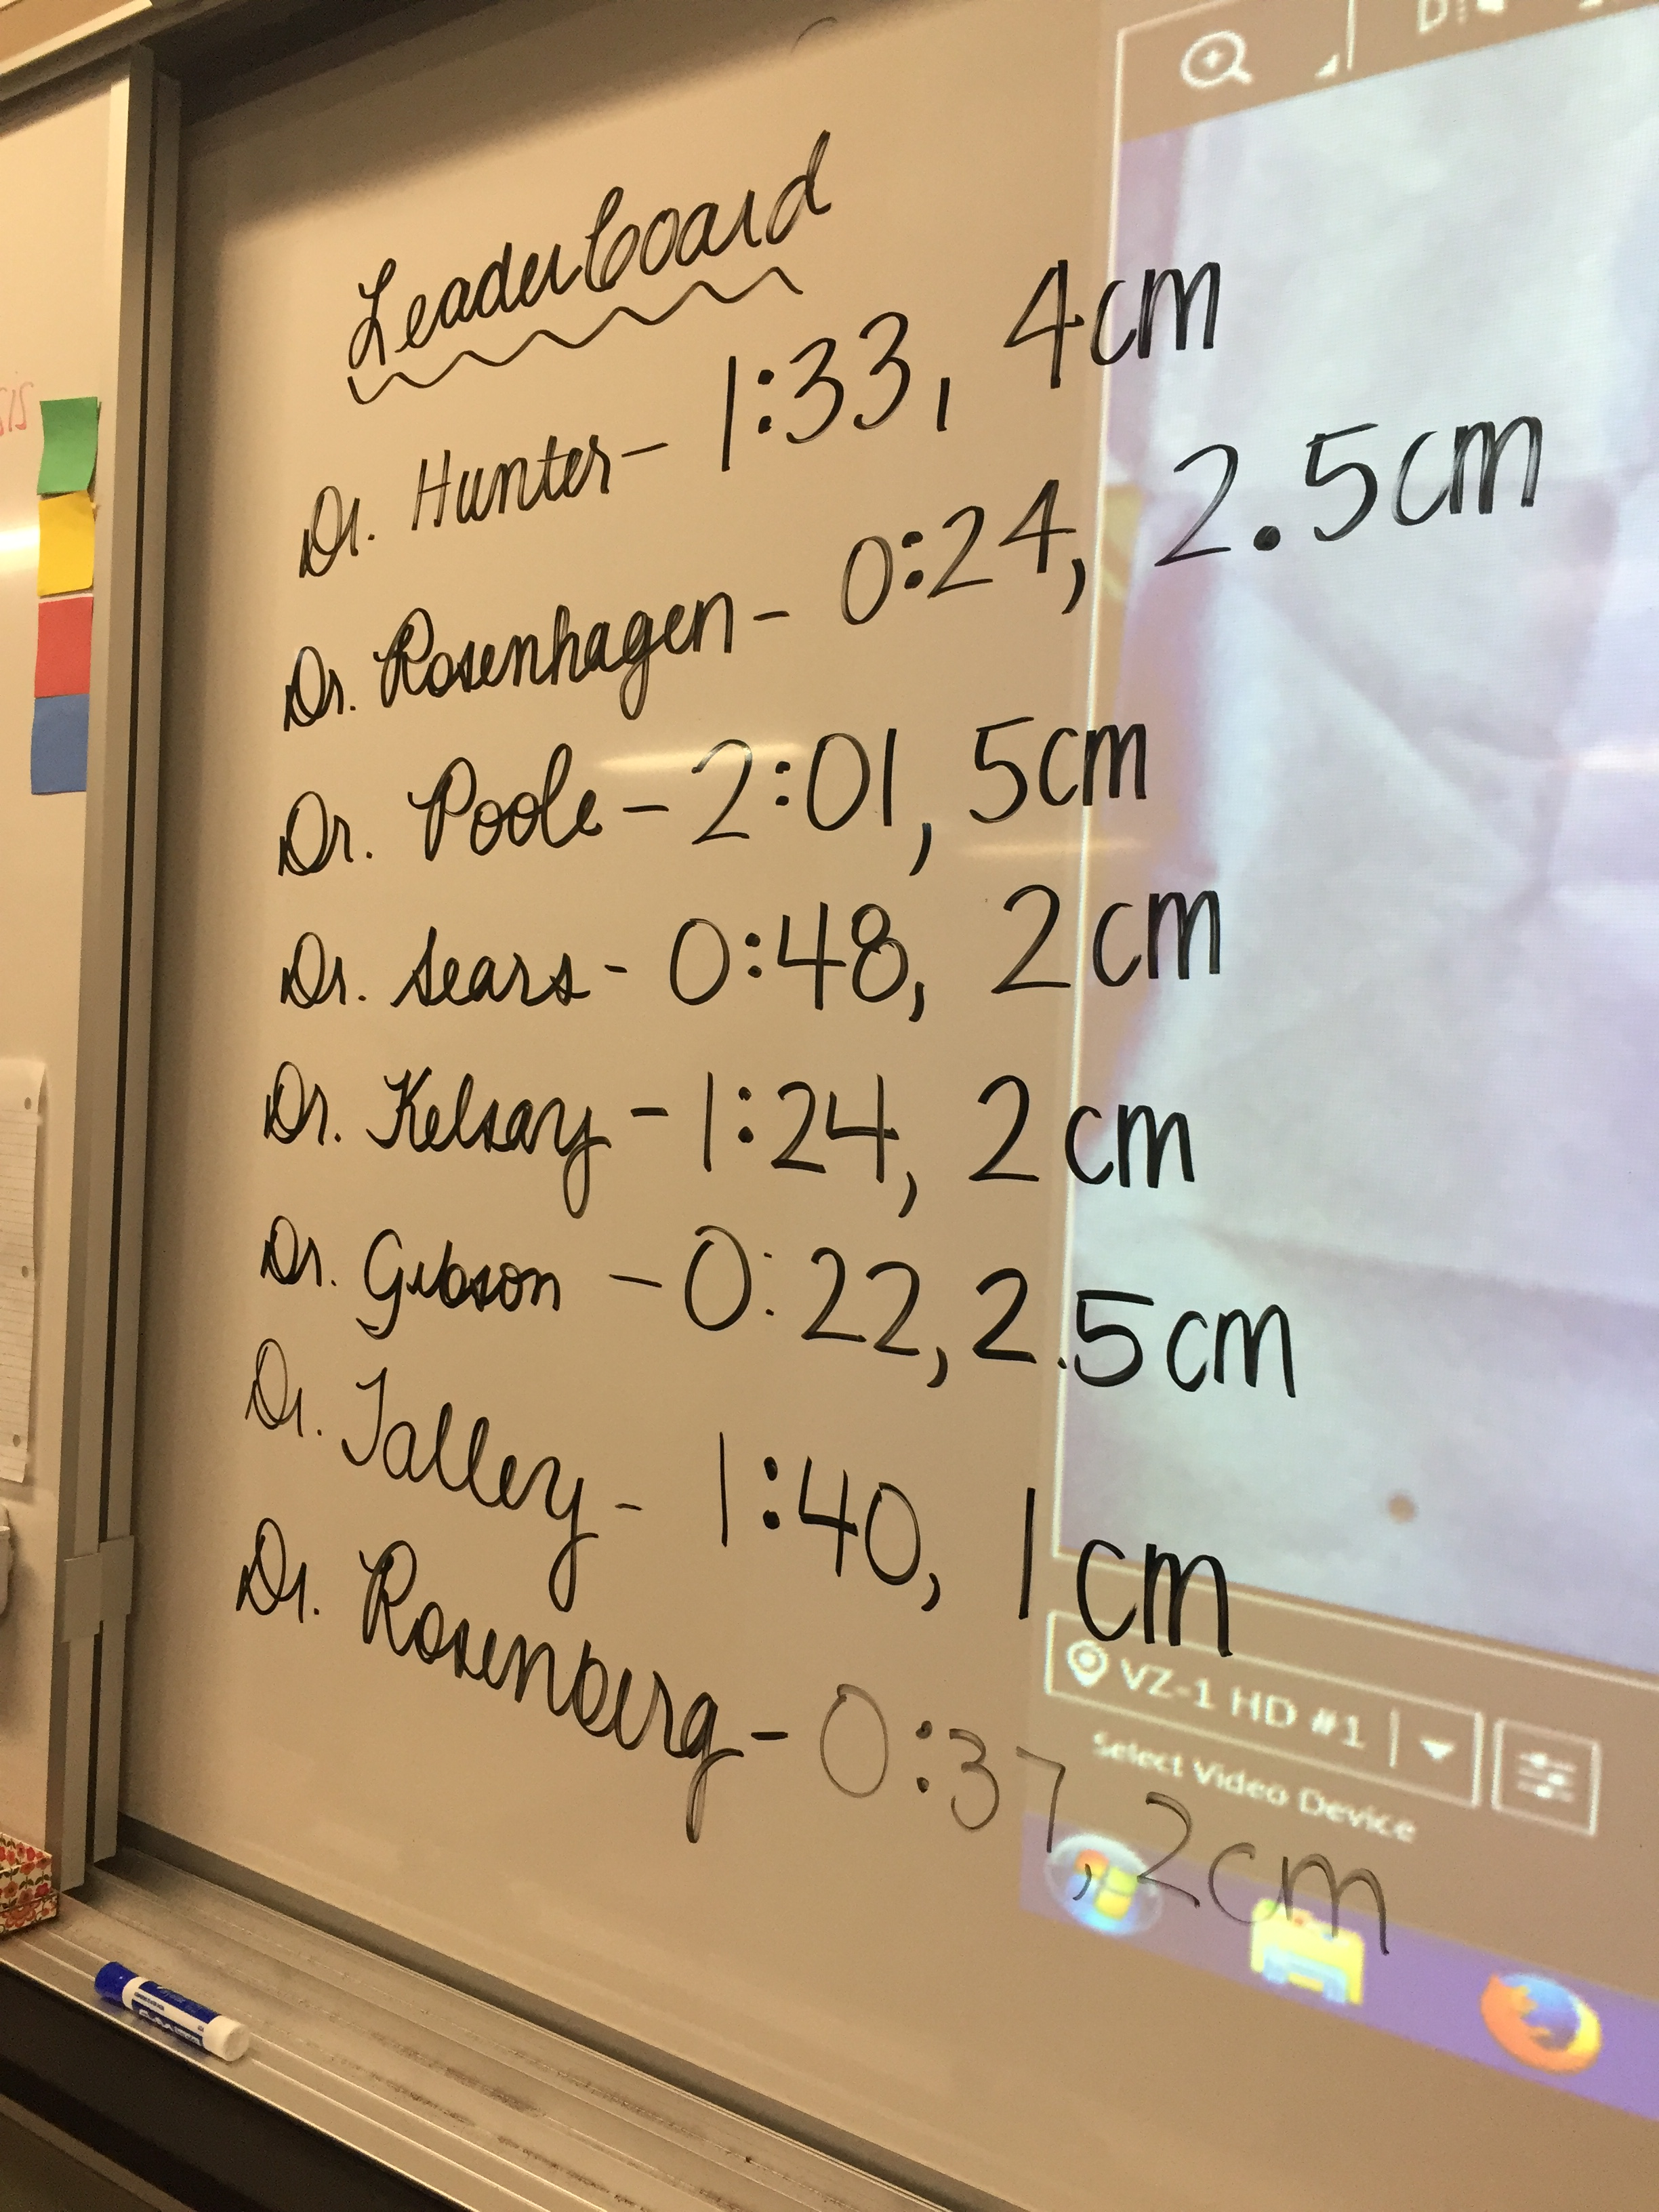 Leaderboard
Dr. Hunter - 1:33, 4cm
Dr. Rosenhagen - 0:24, 2.5cm
Dr. Poole - 2:01, 5cm
Dr. Sears - 0:48, 2cm
Dr. Kelsay - 1:24, 2cm
Dr. Gibson - 0:22, 2.5cm
Dr. Talley - 1:40, 1cm
Dr. Rosenberg - 0:37, 2cm
VZ-1 HD #1
Select Video Device